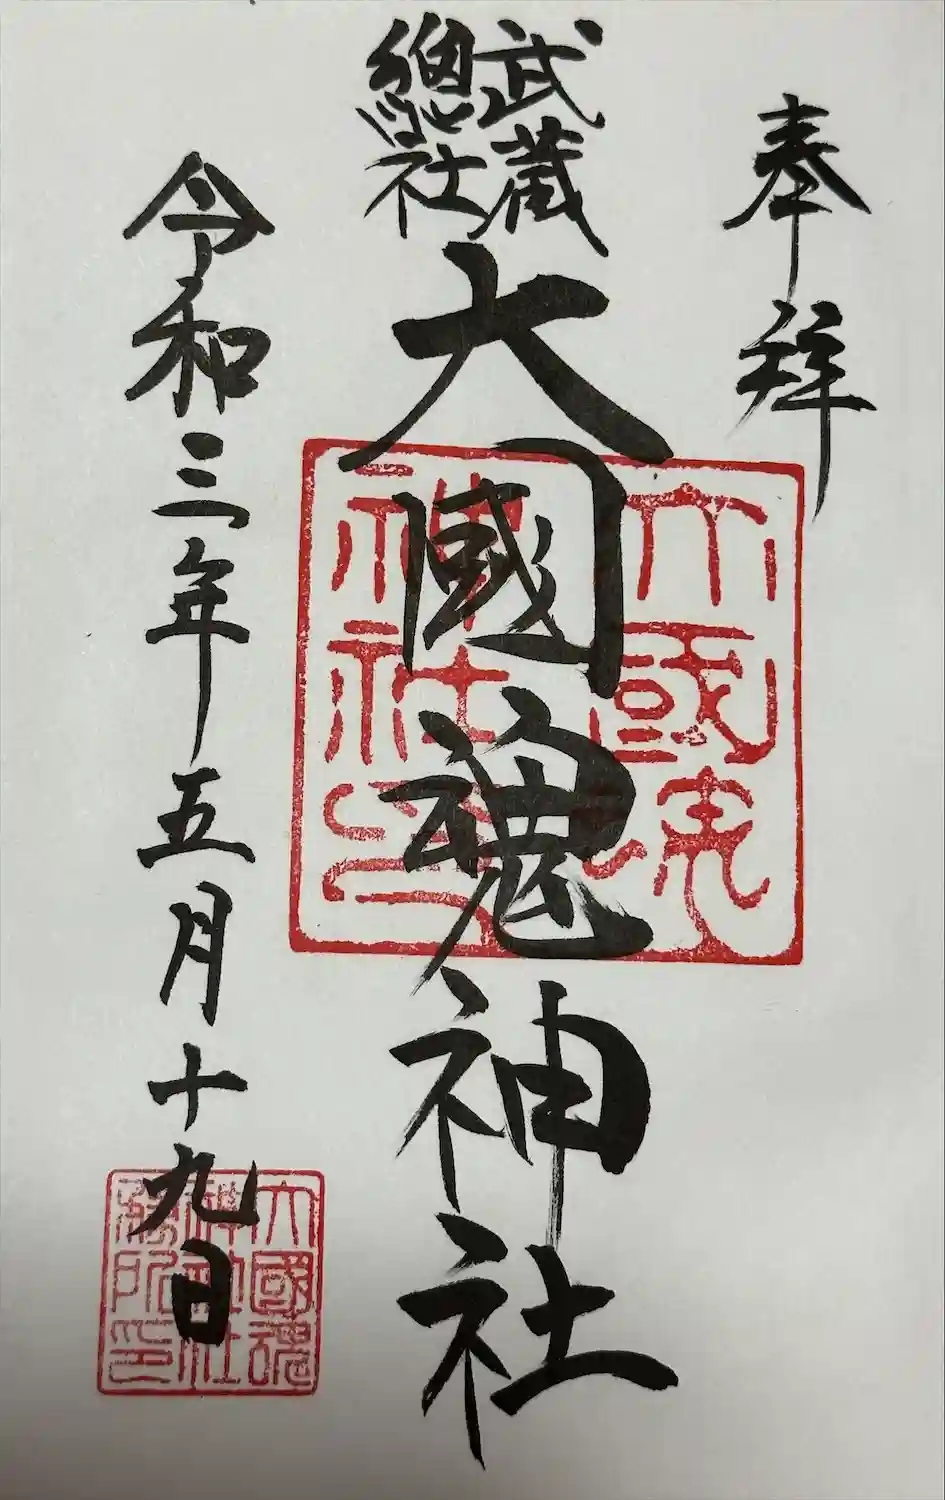 奉拜
武蔵
總社
大國魂神社
令和三年五月十九日
大國魂
神社印
大國魂
神社社
務所印